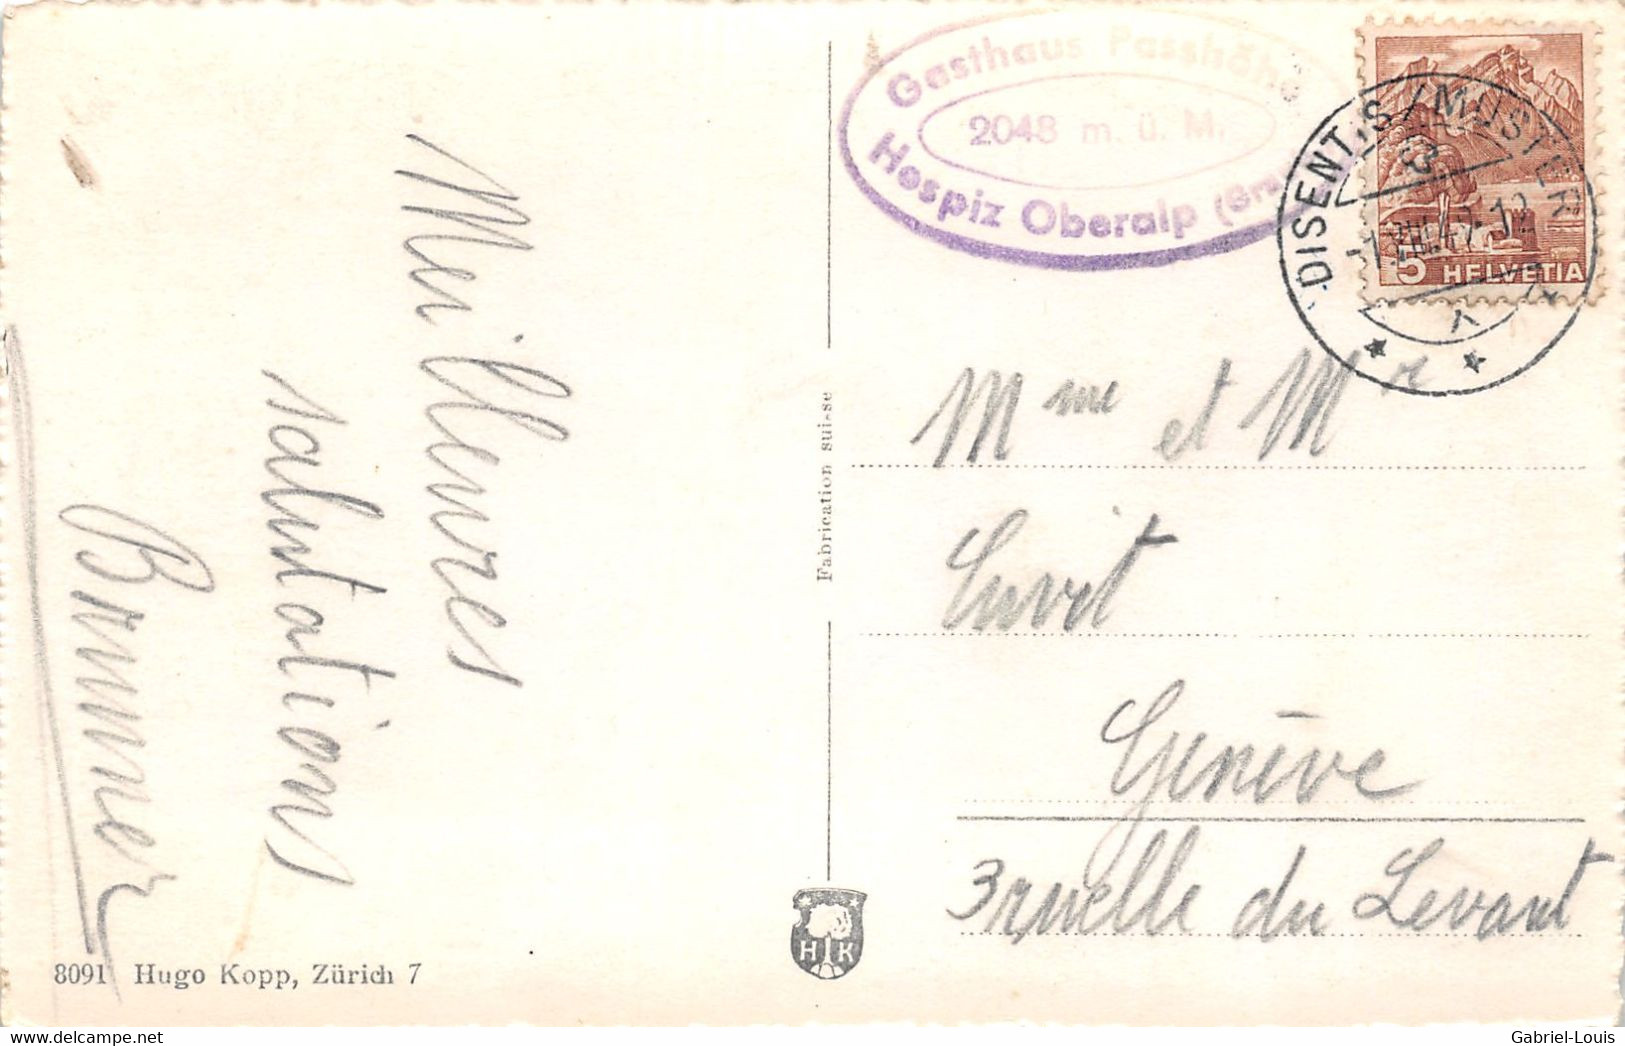 Meilleures
salutations
Brunner
8091 Hugo Kopp, Zürich 7
Fabrication suisse
H K
Gasthaus Passhöhe
2048 m. ü. M.
Hospiz Oberalp
DISENTIS/MUSTER
5 HELVETIA
Mme et Mr
Genève
3 ruelle du Levant
Gabriel-Louis